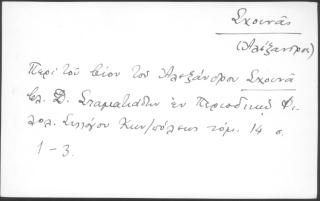 Σχοινᾶς
(Ἀλέξανδρος)
Περὶ τοῦ βίου τοῦ Ἀλεξάνδρου Σχοινᾶ
βλ. Δ. Σταματιάδην ἐν Περιοδικῷ Φι-
λολ. Συλλόγου Κων/πόλεως τόμ. 14 σ.
1-3.